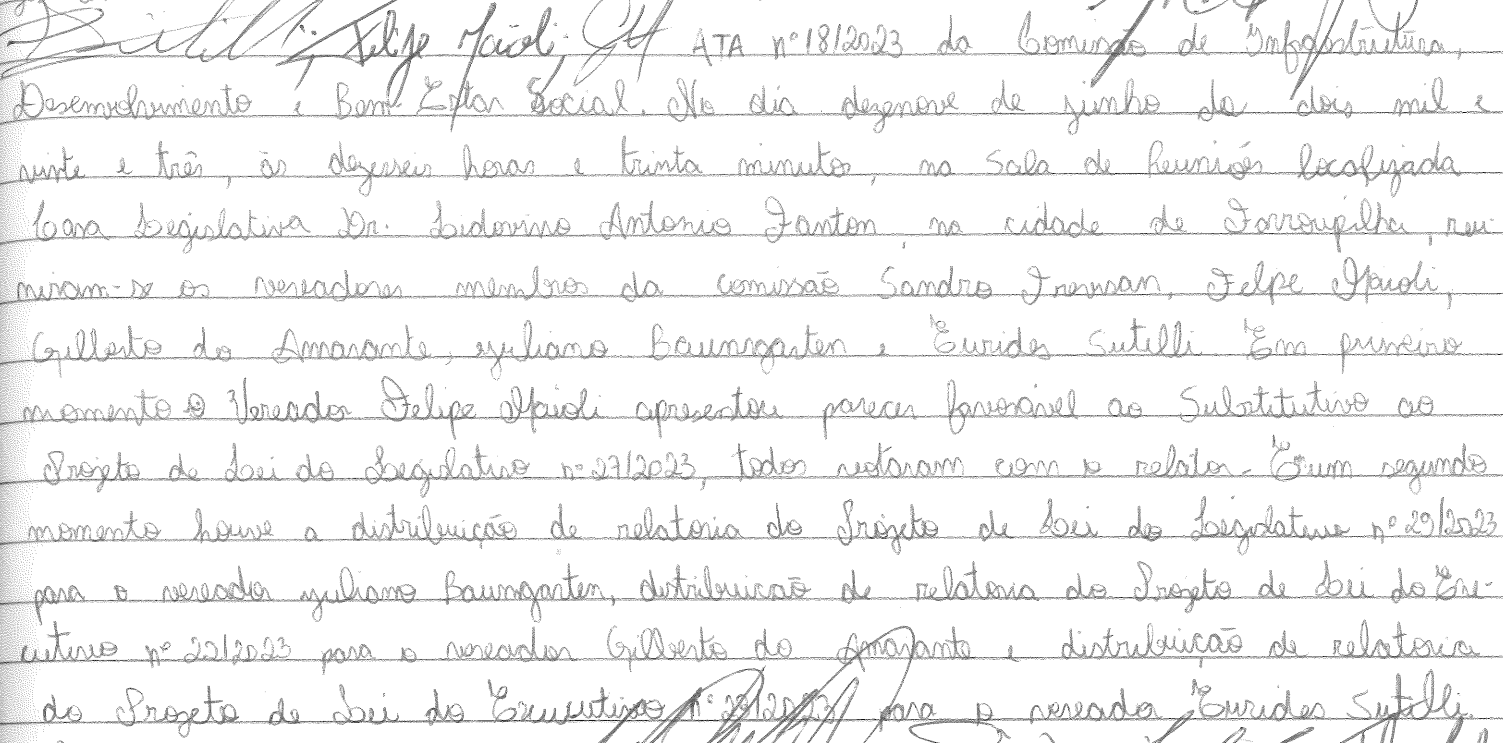 Felipe Maioli, ATA nº 18/2023 da Comissão de Infraestrutura,
Desenvolvimento e Bem Estar Social. No dia dezenove de junho de dois mil e
vinte e três, às dezesseis horas e trinta minutos, na Sala de Reuniões localizada
Casa Legislativa Dr. Lidovino Antonio Fanton, na cidade de Farroupilha, reu-
niram-se os vereadores membros da comissão Sandro Trevisan, Felipe Maioli,
Gilberto do Amarante, Juliano Baumgarten e Eurides Sutilli. Em primeiro
momento o Vereador Felipe Maioli apresentou parecer favorável ao Substitutivo ao
Projeto de Lei do Legislativo nº 27/2023, todos votaram com o relator. Em um segundo
momento houve a distribuição de relatoria do Projeto de Lei do Legislativo nº 29/2023
para o vereador Juliano Baumgarten, distribuicão de relatoria do Projeto de Lei do Exe-
cutivo nº 22/2023 para o vereador Gilberto do Amarante e distribuição de relatoria
do Projeto de Lei do Executivo para o vereador Eurides Sutilli.